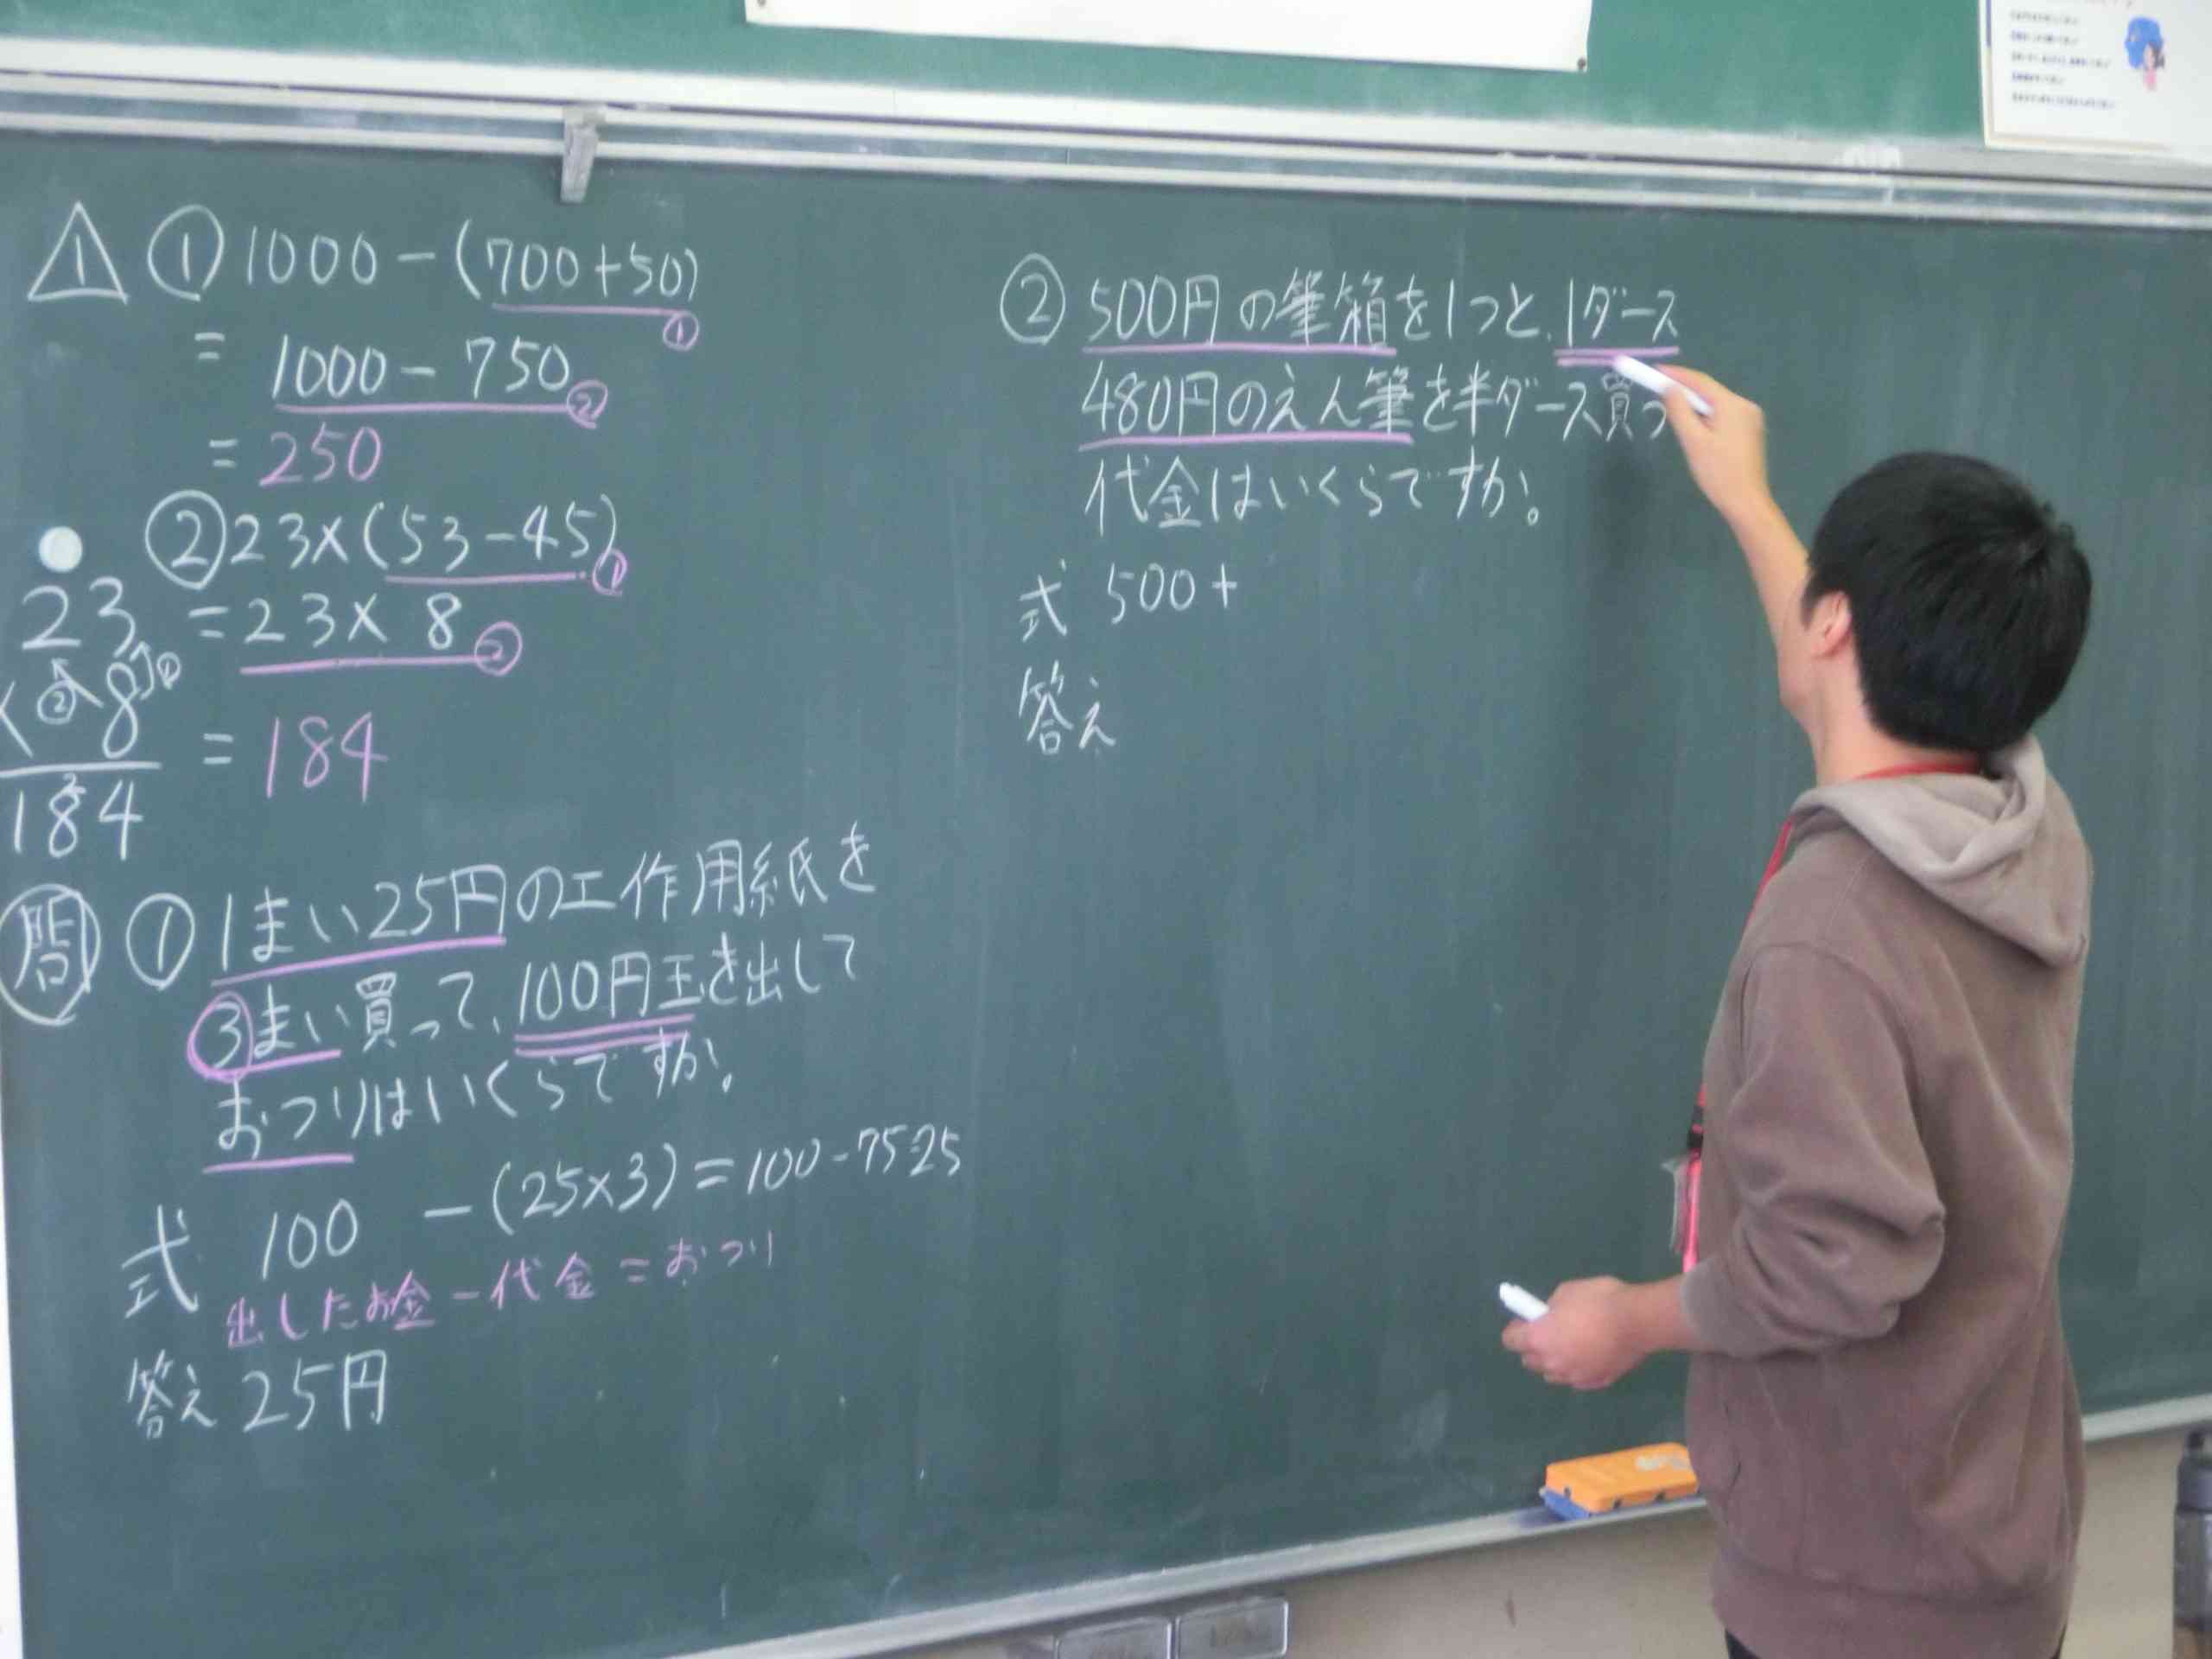 1 ① 1000-(700+50)
①
= 1000-750
②
= 250
② 23×(53-45)
①
= 23×8
②
= 184
23
×8
① ②
2
184
問 ① 1まい25円の工作用紙を
3まい買って、100円玉を出して
おつりはいくらですか。
式 100 -(25×3)=100-75 25
出したお金-代金=おつり
答え 25円
② 500円の筆箱を1つと、1ダース
480円のえん筆を半ダース買っ
代金はいくらですか。
式 500+
答え